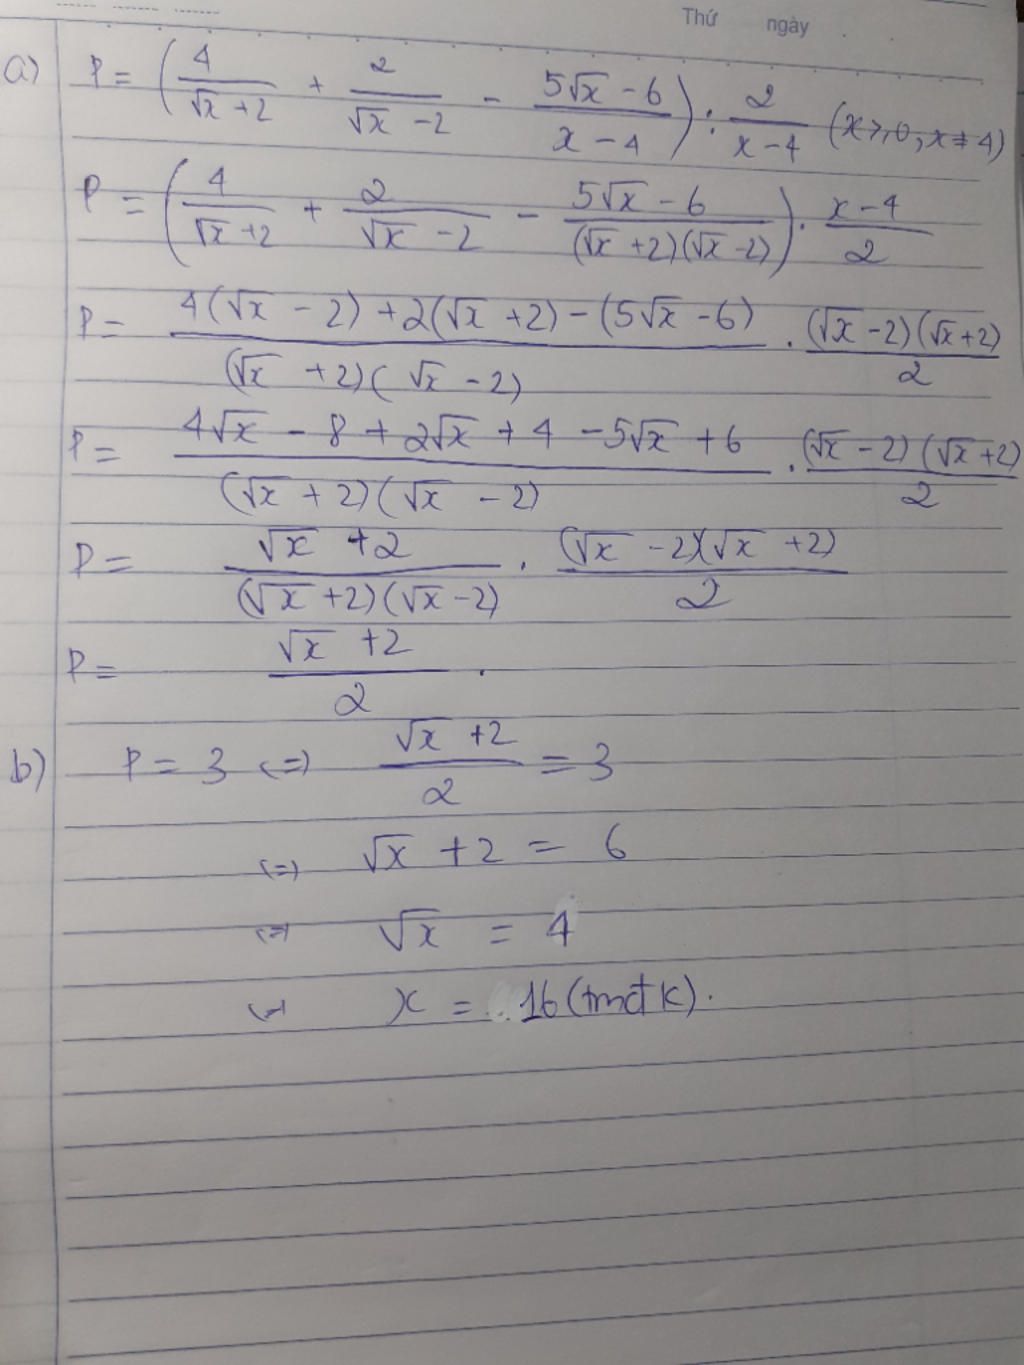 Thứ ngày
a) P = (4/(√x +2) + 2/(√x -2) - (5√x -6)/(x-4)) : 2/(x-4) (x≥0, x≠4)
P = (4/(√x+2) + 2/(√x -2) - (5√x -6)/((√x +2)(√x -2))) . (x-4)/2
P = (4(√x -2) +2(√x +2) -(5√x -6))/((√x +2)(√x -2)) . ((√x -2)(√x +2))/2
P = (4√x - 8 + 2√x + 4 - 5√x + 6)/((√x +2)(√x -2)) . ((√x -2)(√x +2))/2
P = (√x +2)/((√x +2)(√x -2)) . ((√x -2)(√x +2))/2
P = (√x +2)/2 .
b) P = 3 (=) (√x +2)/2 = 3
(=) √x +2 = 6
(=) √x = 4
(=) x = 16 (tmđk).